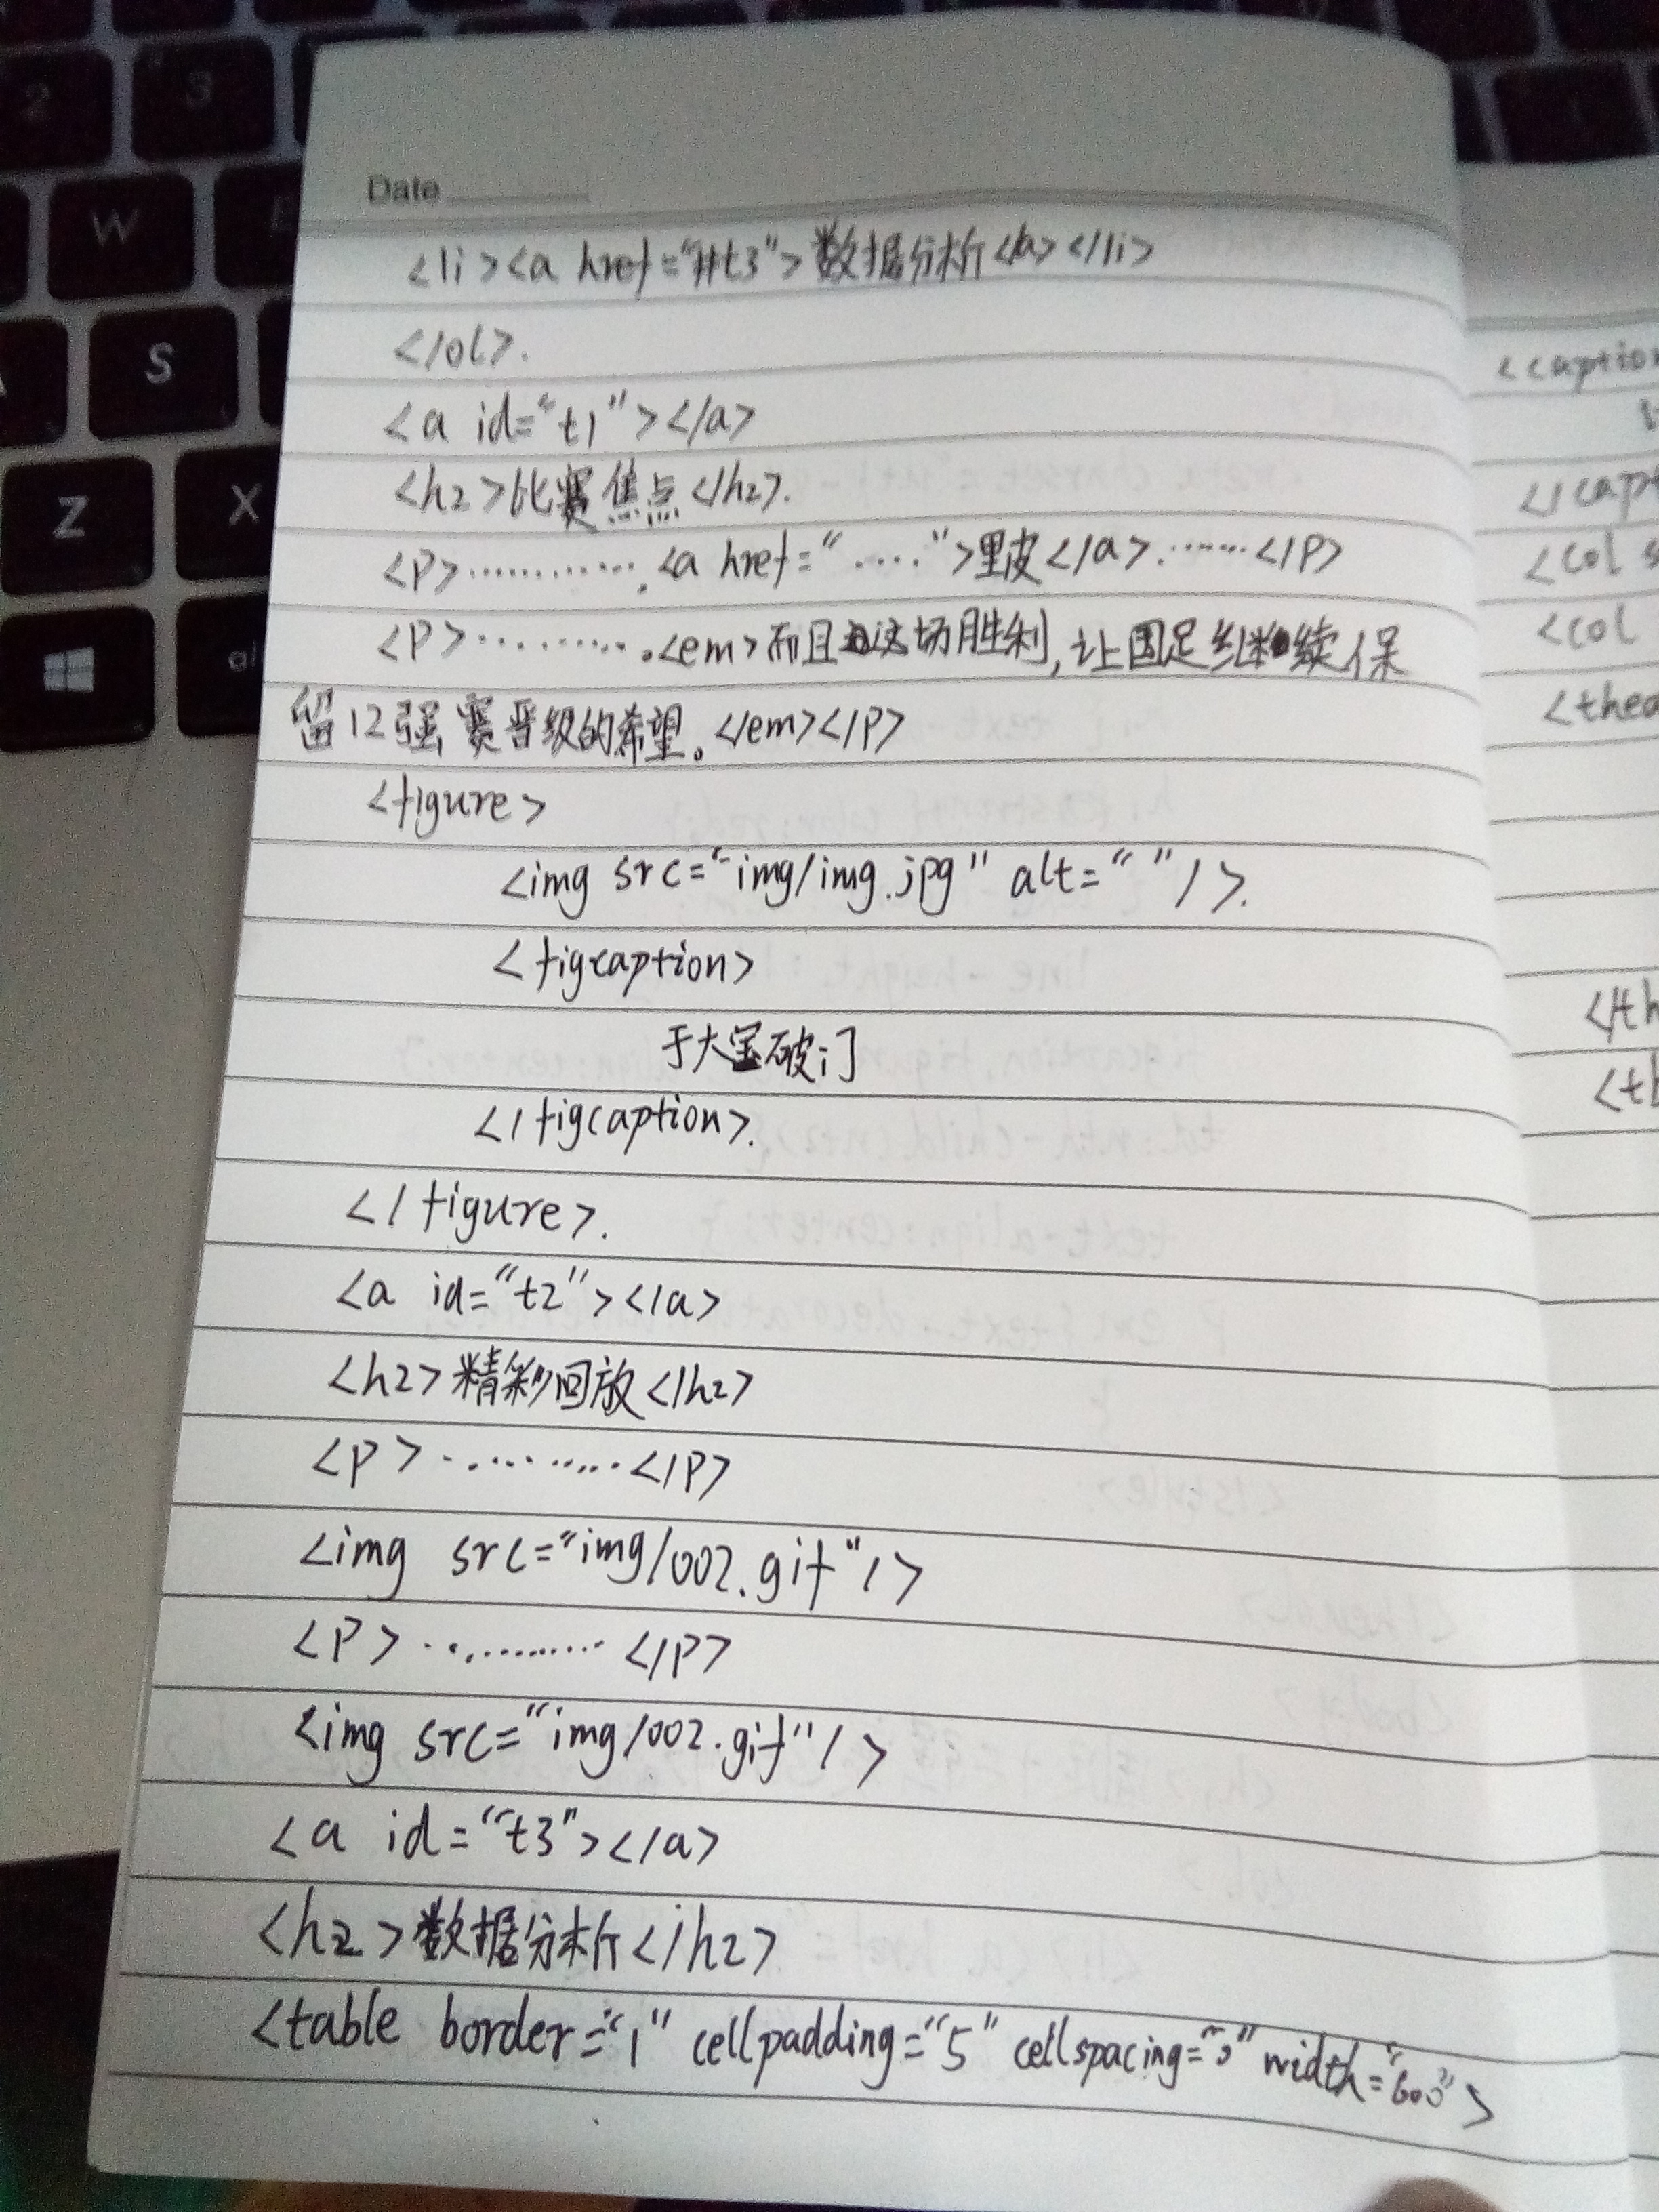 Date
<li><a href="#t3">数据分析</a></li>
</ol>.
<a id="t1"></a>
<h2>比赛焦点</h2>.
<P>.............<a href=".....">里皮</a>.......</P>
<P>...........<em>而且这场胜利,让国足继续保
留12强赛晋级的希望。</em></P>
<figure>
<img src="img/img.jpg" alt=" "/>.
<figcaption>
于大宝破门
</figcaption>.
</figure>.
<a id="t2"></a>
<h2>精彩回放</h2>
<P>...........</P>
<img src="img/002.gif"/>
<P>............</P>
<img src="img/002.gif"/>
<a id="t3"></a>
<h2>数据分析</h2>
<table border="1" cellpadding="5" cellspacing="0" width="600">
<caption
</capt
<col s
<col
<thea
</th
<tb
2
3
W
S
Z
X
al